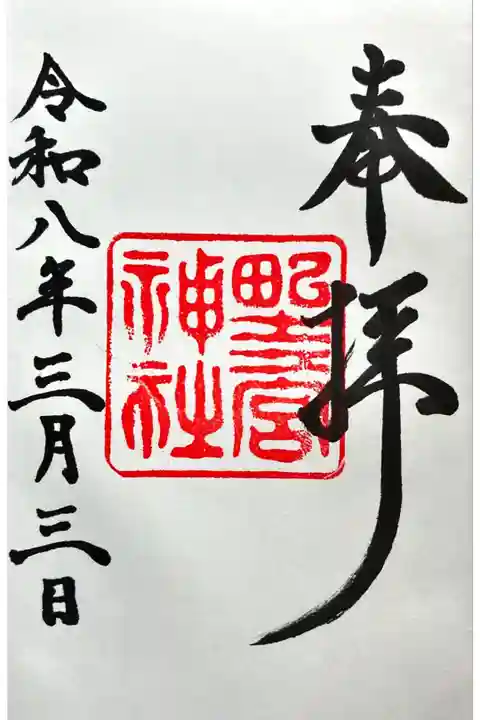 奉拝
野宮神社
令和八年三月三日